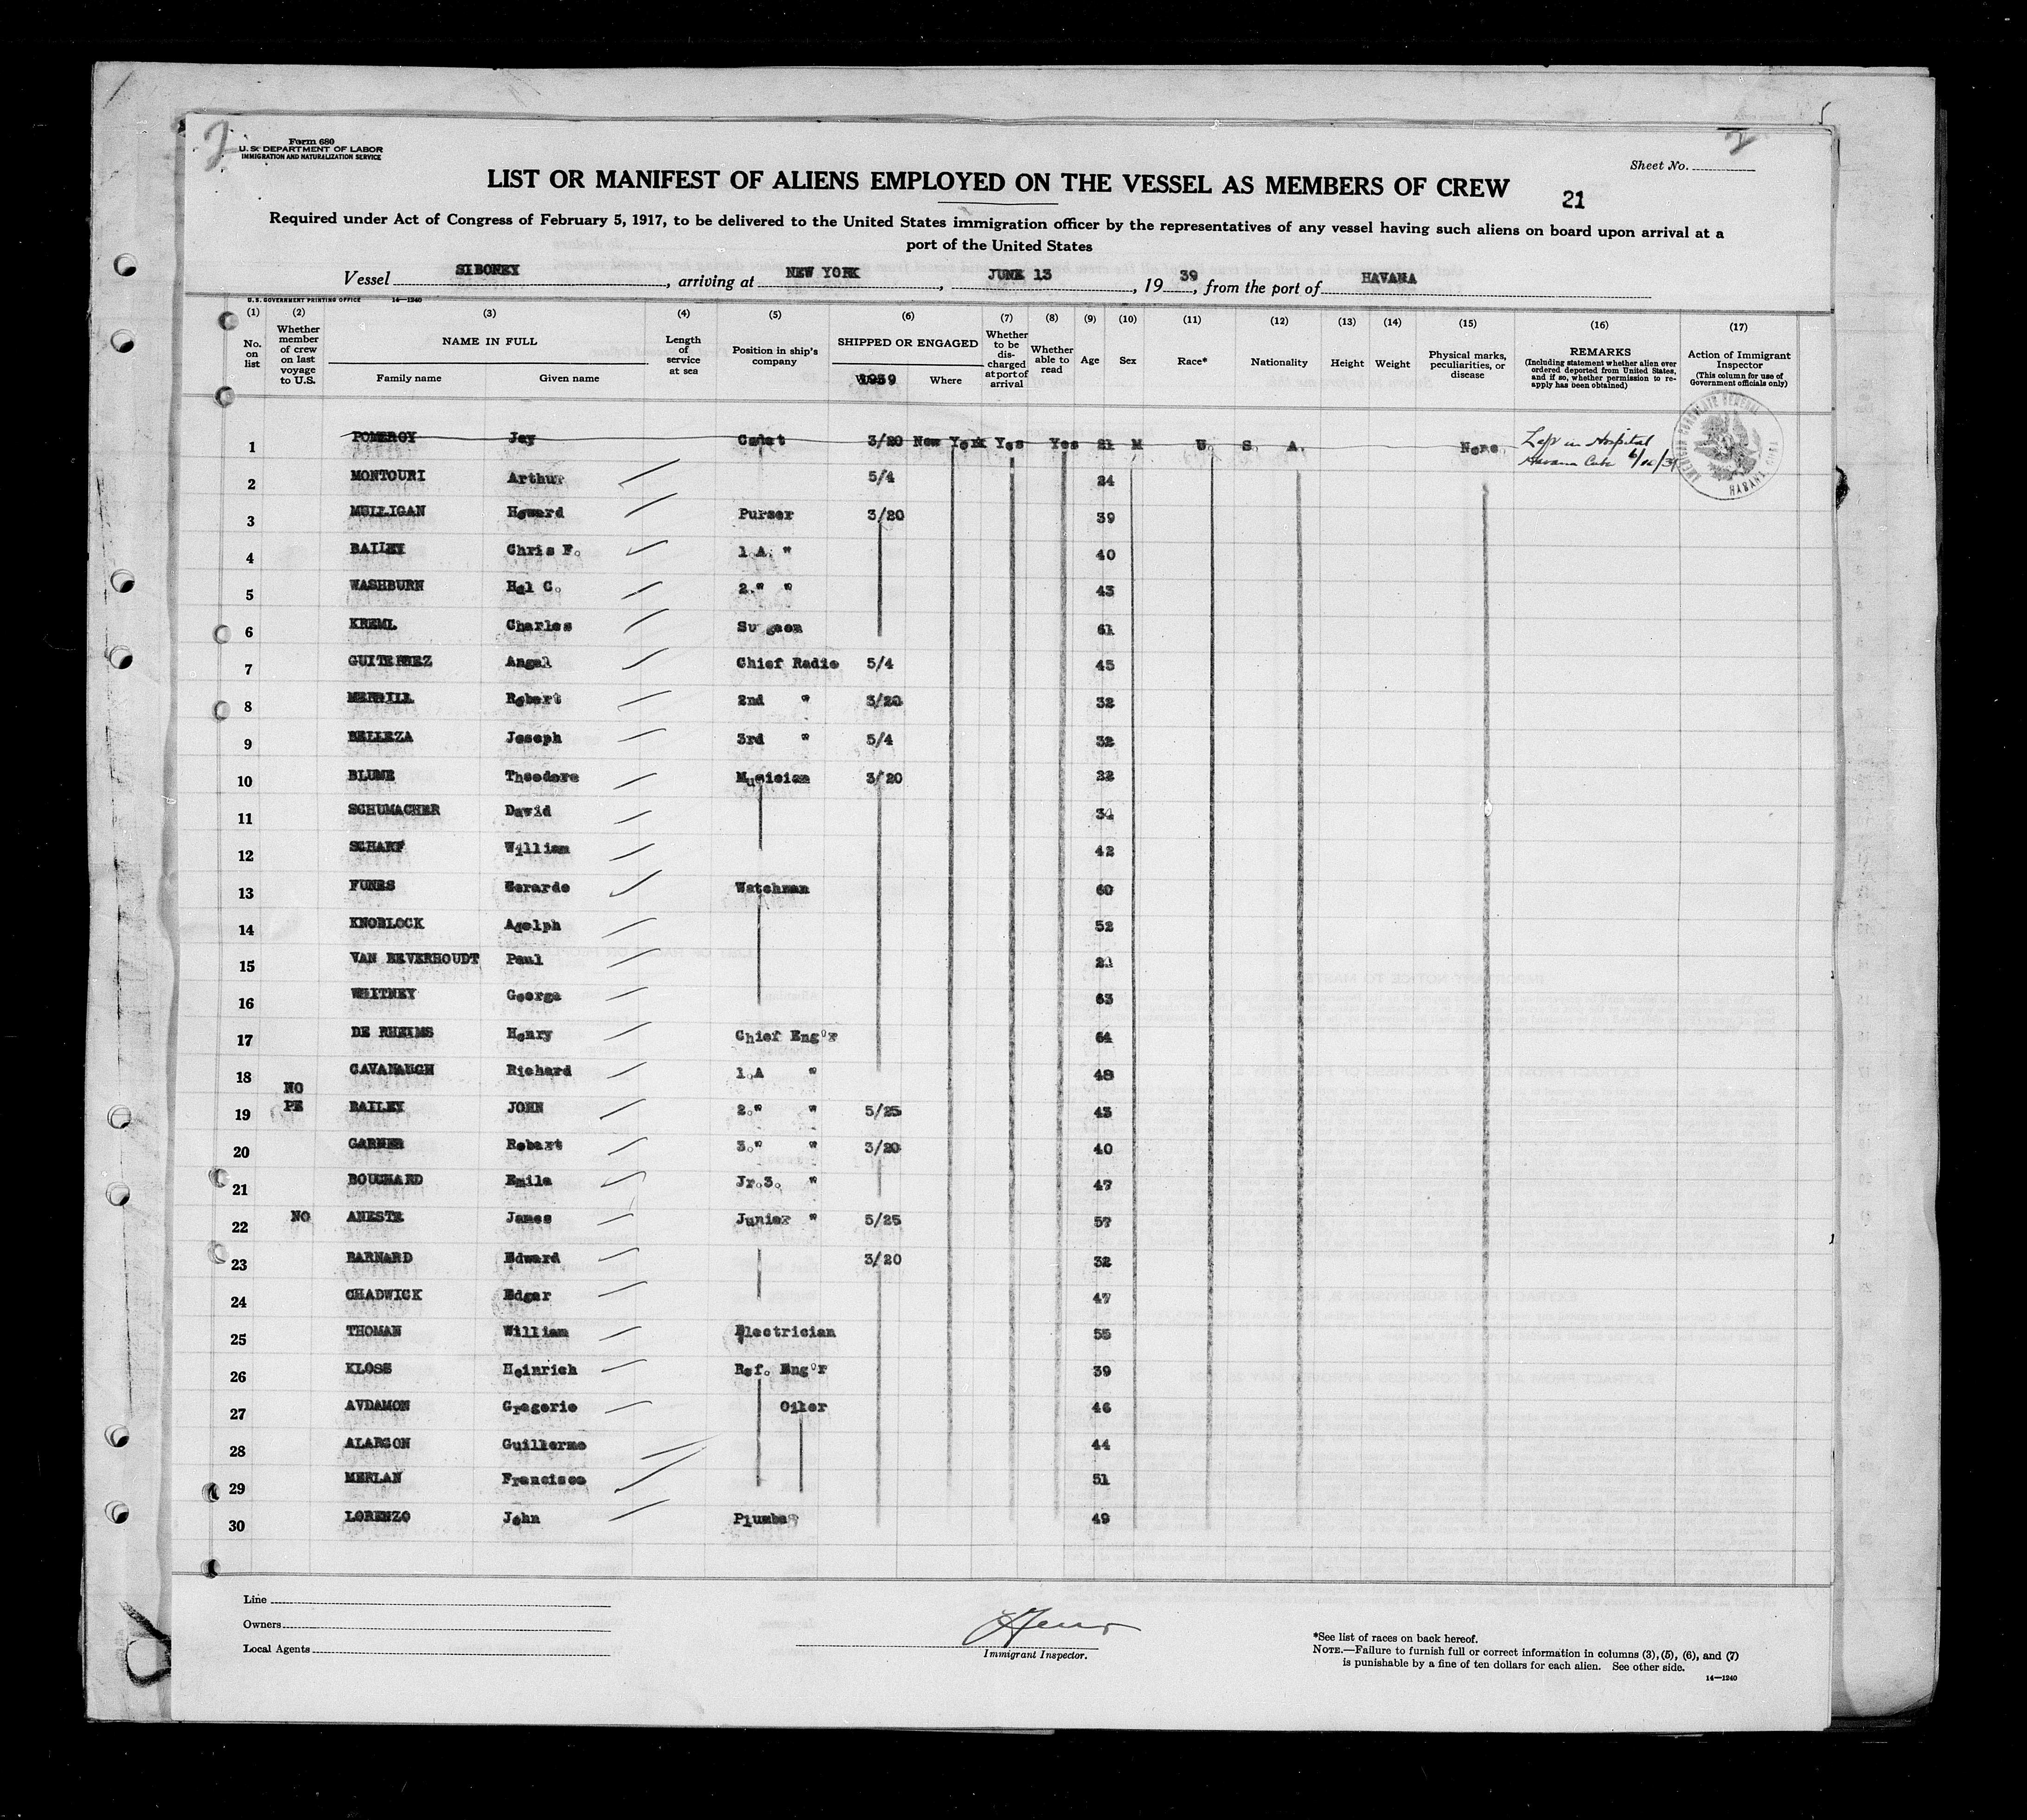 2 2
Form 680
U. S. DEPARTMENT OF LABOR
IMMIGRATION AND NATURALIZATION SERVICE
Sheet No.
LIST OR MANIFEST OF ALIENS EMPLOYED ON THE VESSEL AS MEMBERS OF CREW
21
Required under Act of Congress of February 5, 1917, to be delivered to the United States immigration officer by the representatives of any vessel having such aliens on board upon arrival at a
port of the United States
Vessel SIBONEY, arriving at NEW YORK, JUNE 13, 1939, from the port of HAVANA
U. S. GOVERNMENT PRINTING OFFICE 14—1240
(1) (2) (3) (4) (5) (6) (7) (8) (9) (10) (11) (12) (13) (14) (15) (16) (17)
No. on list
Whether member of crew on last voyage to U.S.
NAME IN FULL
Family name Given name
Length of service at sea
Position in ship's company
SHIPPED OR ENGAGED
1939 Where
Whether to be discharged at port of arrival
Whether able to read
Age
Sex
Race*
Nationality
Height
Weight
Physical marks, peculiarities, or disease
REMARKS
(Including statement whether alien ever ordered deported from United States, and if so, whether permission to reapply has been obtained)
Action of Immigrant Inspector
(This column for use of Government officials only)
1 POMEROY Jay Cadet 3/20 New York Yes Yes 21 M U. S. A. None Left in Hospital Havana Cuba 6/10/39
AMERICAN CONSULATE GENERAL HAVANA
2 MONTOURI Arthur 5/4 24
3 MULLIGAN Howard Purser 3/20 39
4 BAILEY Chris F. 1.A. " 40
5 WASHBURN Hal C. 2." " 43
6 KREML Charles Surgeon 61
7 GUITERREZ Angel Chief Radio 5/4 45
8 MERRILL Robert 2nd " 3/20 32
9 BELLEZA Joseph 3rd " 5/4 32
10 BLUME Theodore Musician 3/20 22
11 SCHUMACHER David 34
12 SCHARF William 42
13 FUNES Gerardo Watchman 60
14 KNOBLOCK Adolph 52
15 VAN BEVERHOUDT Paul 21
16 WHITNEY George 63
17 DE RHEIMS Henry Chief Eng'r 64
18 CAVANAUGH Richard 1.A " 48
19 NO PE BAILEY JOHN 2." " 5/25 43
20 GARNER Robert 3." " 3/20 40
21 BOUCHARD Emile Jr.3. " 47
22 NO ANESTE James Junior " 5/25 57
23 BARNARD Edward 3/20 32
24 CHADWICK Edgar 47
25 THOMAN William Electrician 55
26 KLOSS Heinrich Ref. Eng'r 39
27 AVDAMON Gregorio Oiler 46
28 ALARCON Guillermo 44
29 MERLAN Francisco 51
30 LORENZO John Plumber 49
Line
Owners
Local Agents
Immigrant Inspector.
*See list of races on back hereof.
NOTE.—Failure to furnish full or correct information in columns (3), (5), (6), and (7)
is punishable by a fine of ten dollars for each alien. See other side.
14—1240